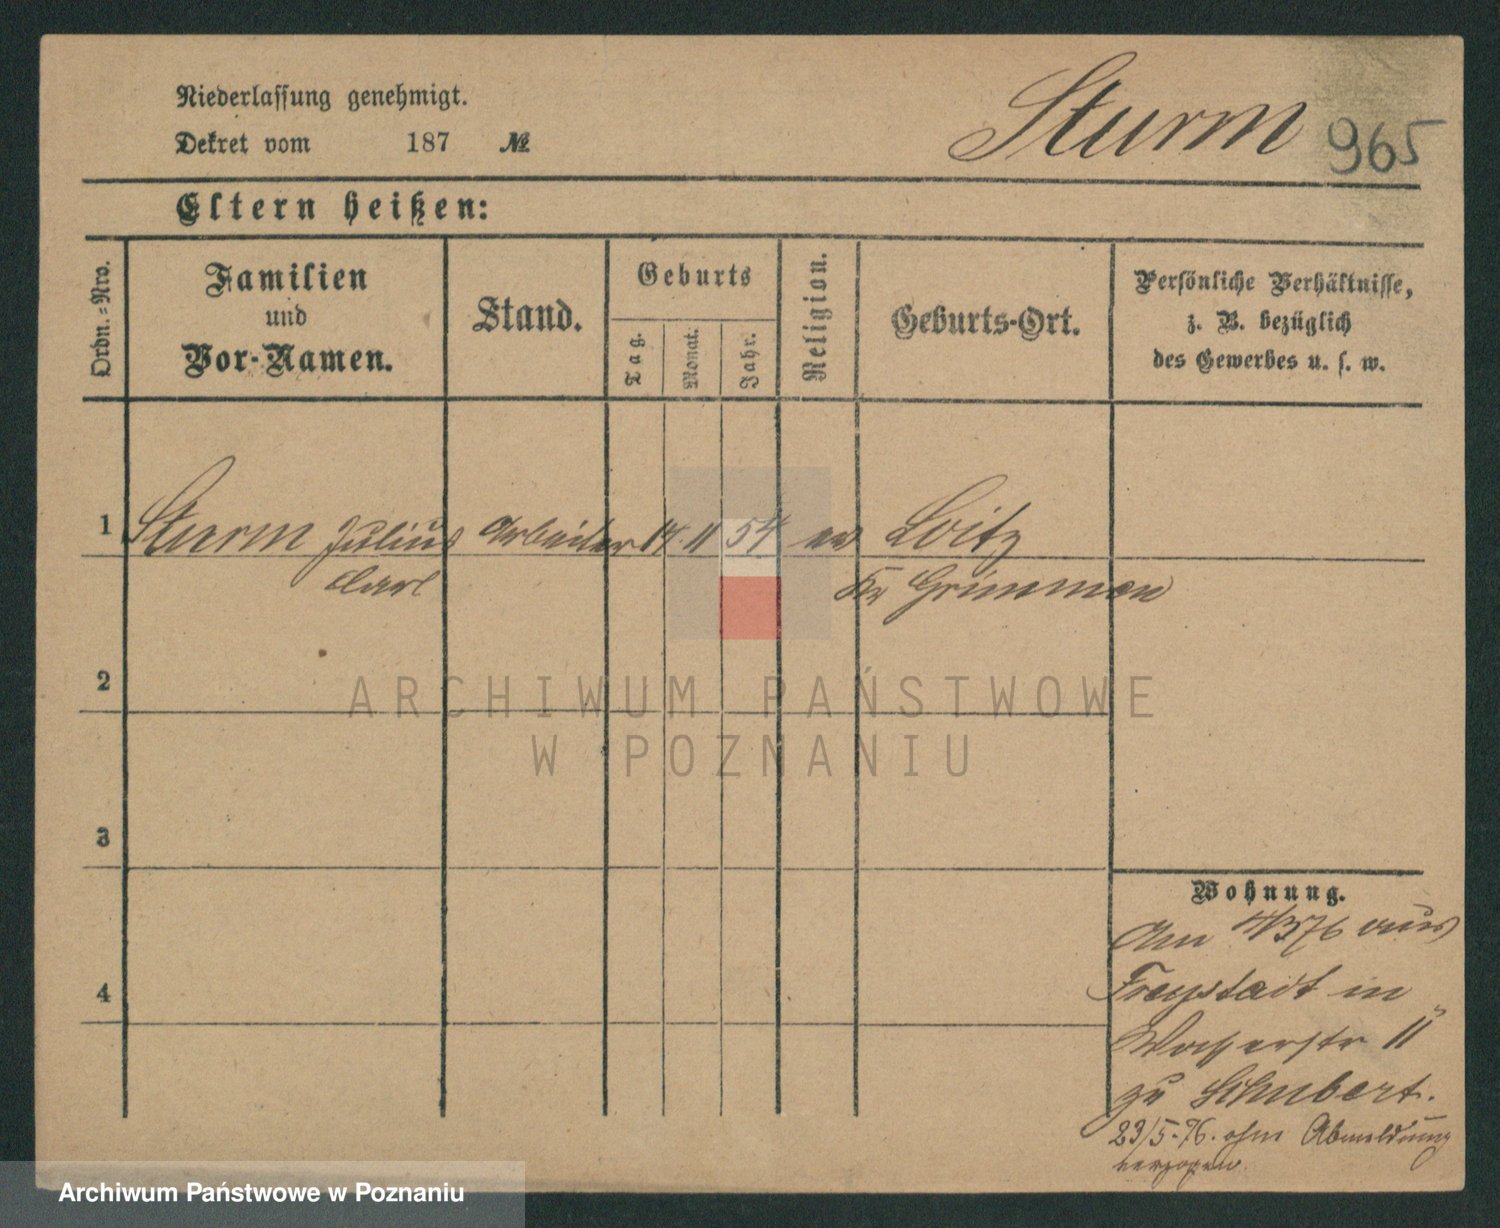 Niederlassung genehmigt.
Dekret vom 187 №
Sturm 965
Eltern heißen:
Ordn.-Nro.
Familien
und
Vor-Namen.
Stand.
Geburts
Tag.
Monat.
Jahr.
Religion.
Geburts-Ort.
Persönliche Verhältnisse,
z. B. bezüglich
des Gewerbes u. s. w.
1 Sturm Julius Arbeiter 14 11 54 ev Loitz
Carl Kr Grimmen
2
ARCHIWUM PAŃSTWOWE
W POZNANIU
3
4
Wohnung.
Am 4/3 76 aus
Freystadt in
Wasserstr 11
zu Schubert.
23/5.76. ohne Abmeldung
verzogen.
Archiwum Państwowe w Poznaniu